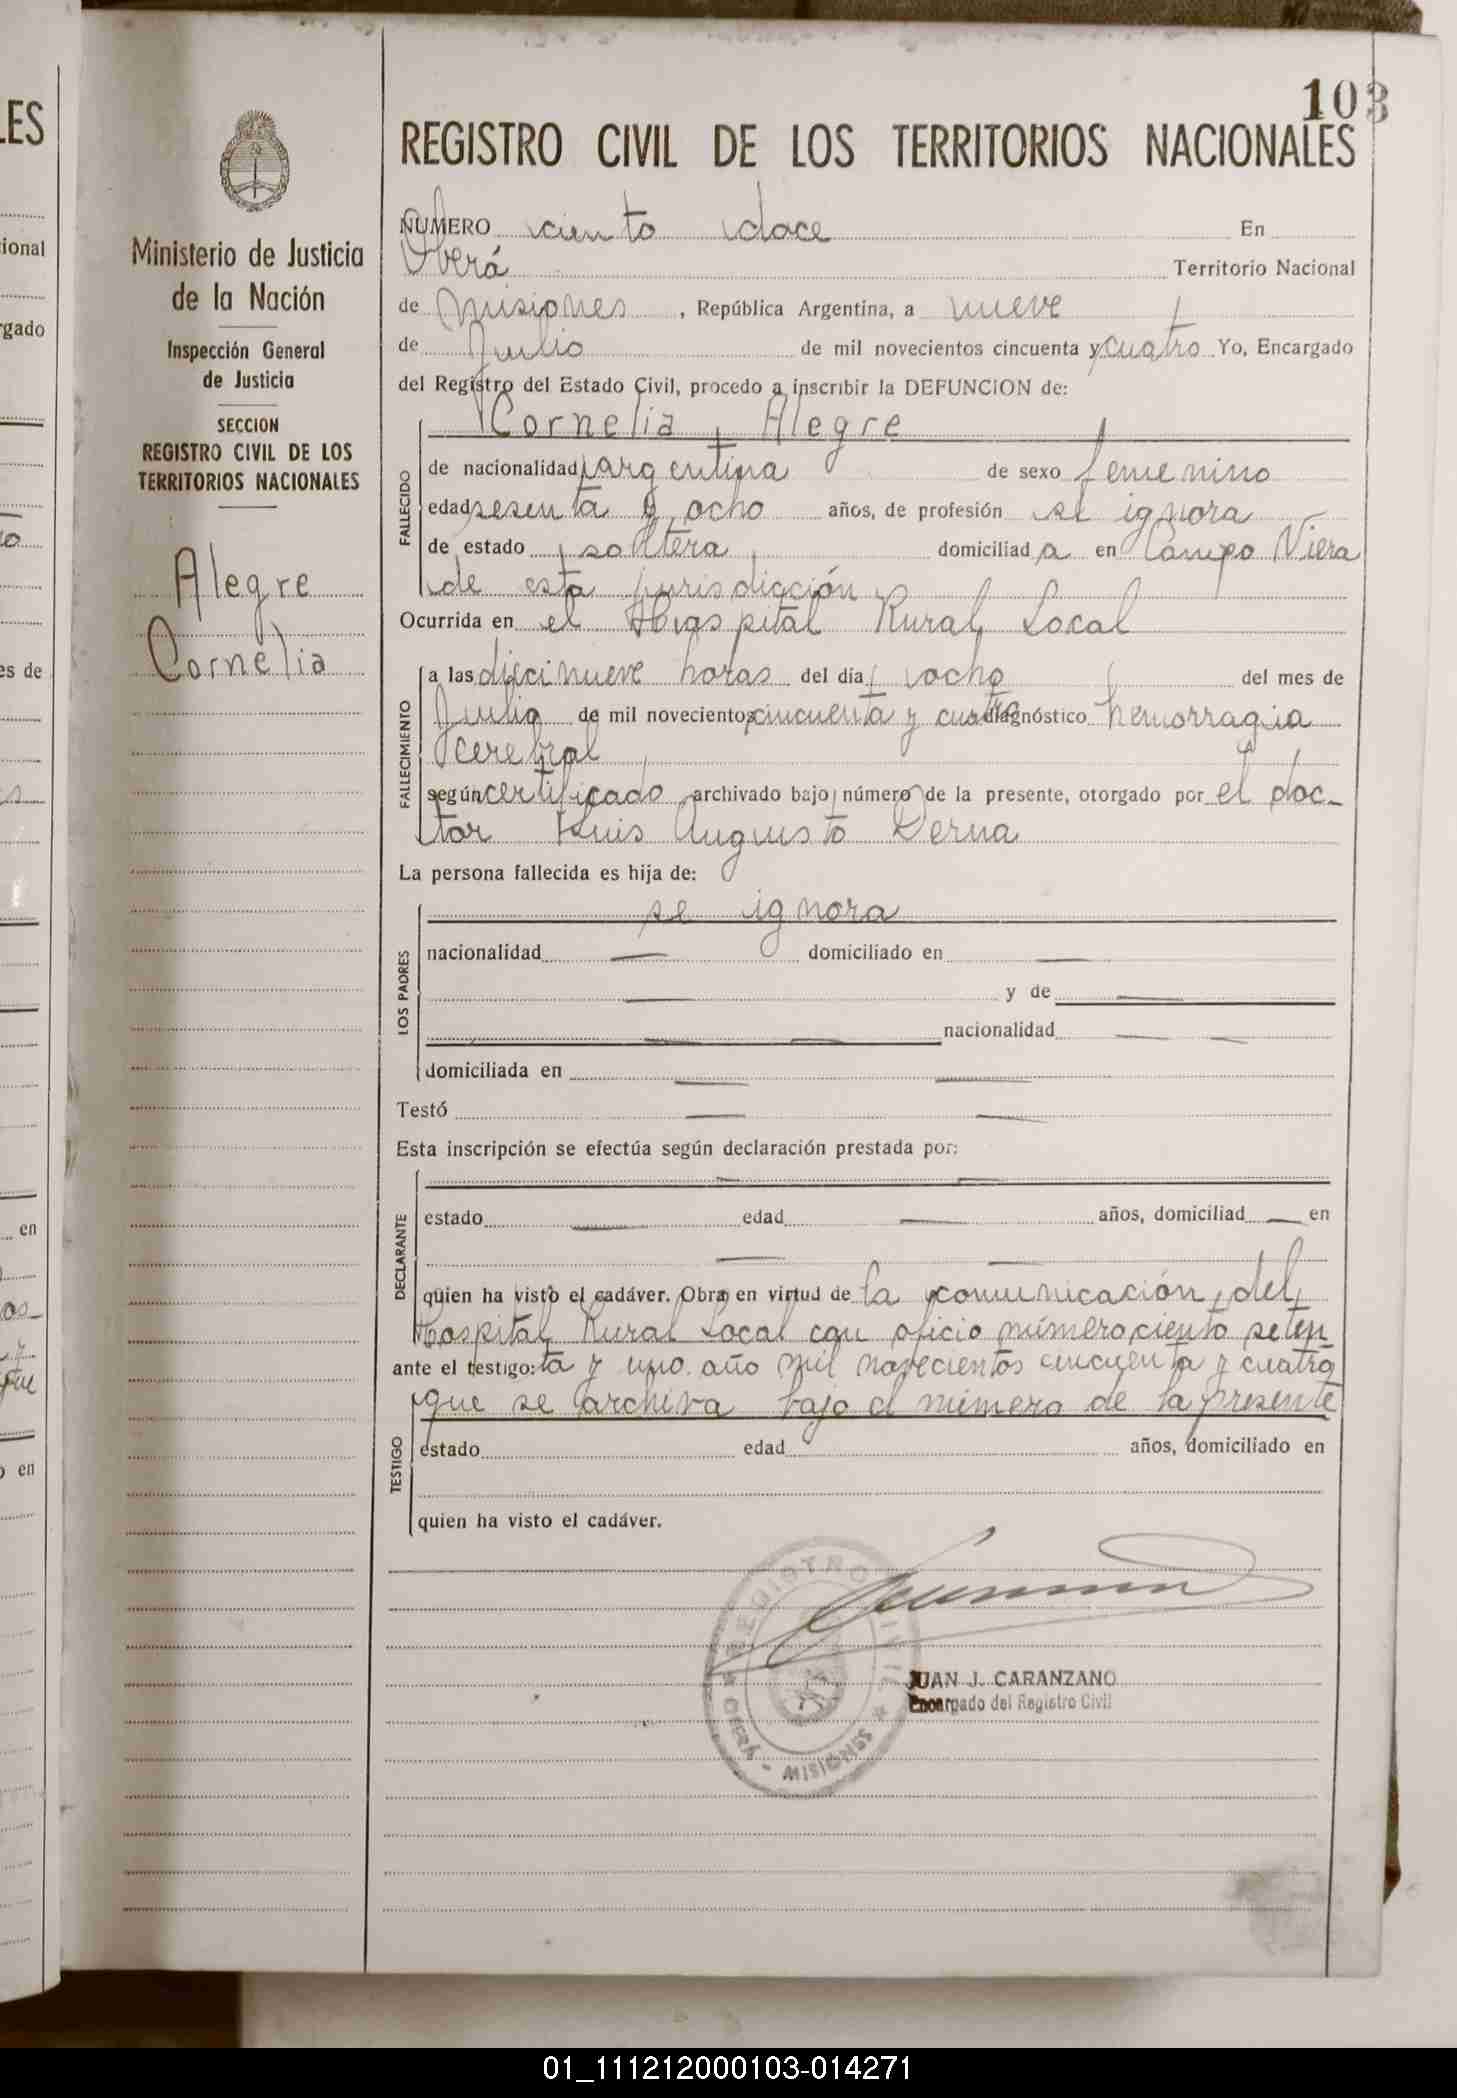 103
REGISTRO CIVIL DE LOS TERRITORIOS NACIONALES
Ministerio de Justicia
de la Nación
Inspección General
de Justicia
SECCION
REGISTRO CIVIL DE LOS
TERRITORIOS NACIONALES
Alegre
Cornelia
NUMERO ciento doce En
Oberá Territorio Nacional
de Misiones, República Argentina, a nueve
de Julio de mil novecientos cincuenta y cuatro Yo, Encargado
del Registro del Estado Civil, procedo a inscribir la DEFUNCION de:
Cornelia Alegre
FALLECIDO
de nacionalidad argentina de sexo femenino
edad sesenta y ocho años, de profesión se ignora
de estado soltera domiciliada en Campo Viera
de esta jurisdicción
Ocurrida en el Hospital Rural Local
FALLECIMIENTO
a las diecinueve horas del día ocho del mes de
Julio de mil novecientos cincuenta y cuatro diagnóstico hemorragia
cerebral
según certificado archivado bajo número de la presente, otorgado por el doc-
tor Luis Augusto Derna
La persona fallecida es hija de:
LOS PADRES
se ignora
nacionalidad — domiciliado en —
— y de —
— — nacionalidad — —
domiciliada en — —
Testó — —
Esta inscripción se efectúa según declaración prestada por:
DECLARANTE
— —
estado — edad — años, domiciliad — en
— —
quien ha visto el cadáver. Obra en virtud de la comunicación del
Hospital Rural Local con oficio número ciento seten
ante el testigo: ta y uno año mil novecientos cincuenta y cuatro
que se archiva bajo el número de la presente
TESTIGO
estado edad años, domiciliado en
quien ha visto el cadáver.
REGISTRO CIVIL
OBERÁ - MISIONES
JUAN J. CARANZANO
Encargado del Registro Civil
01_111212000103-014271